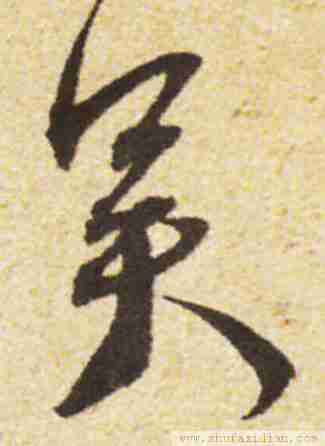 吳
www.shufazidian.com